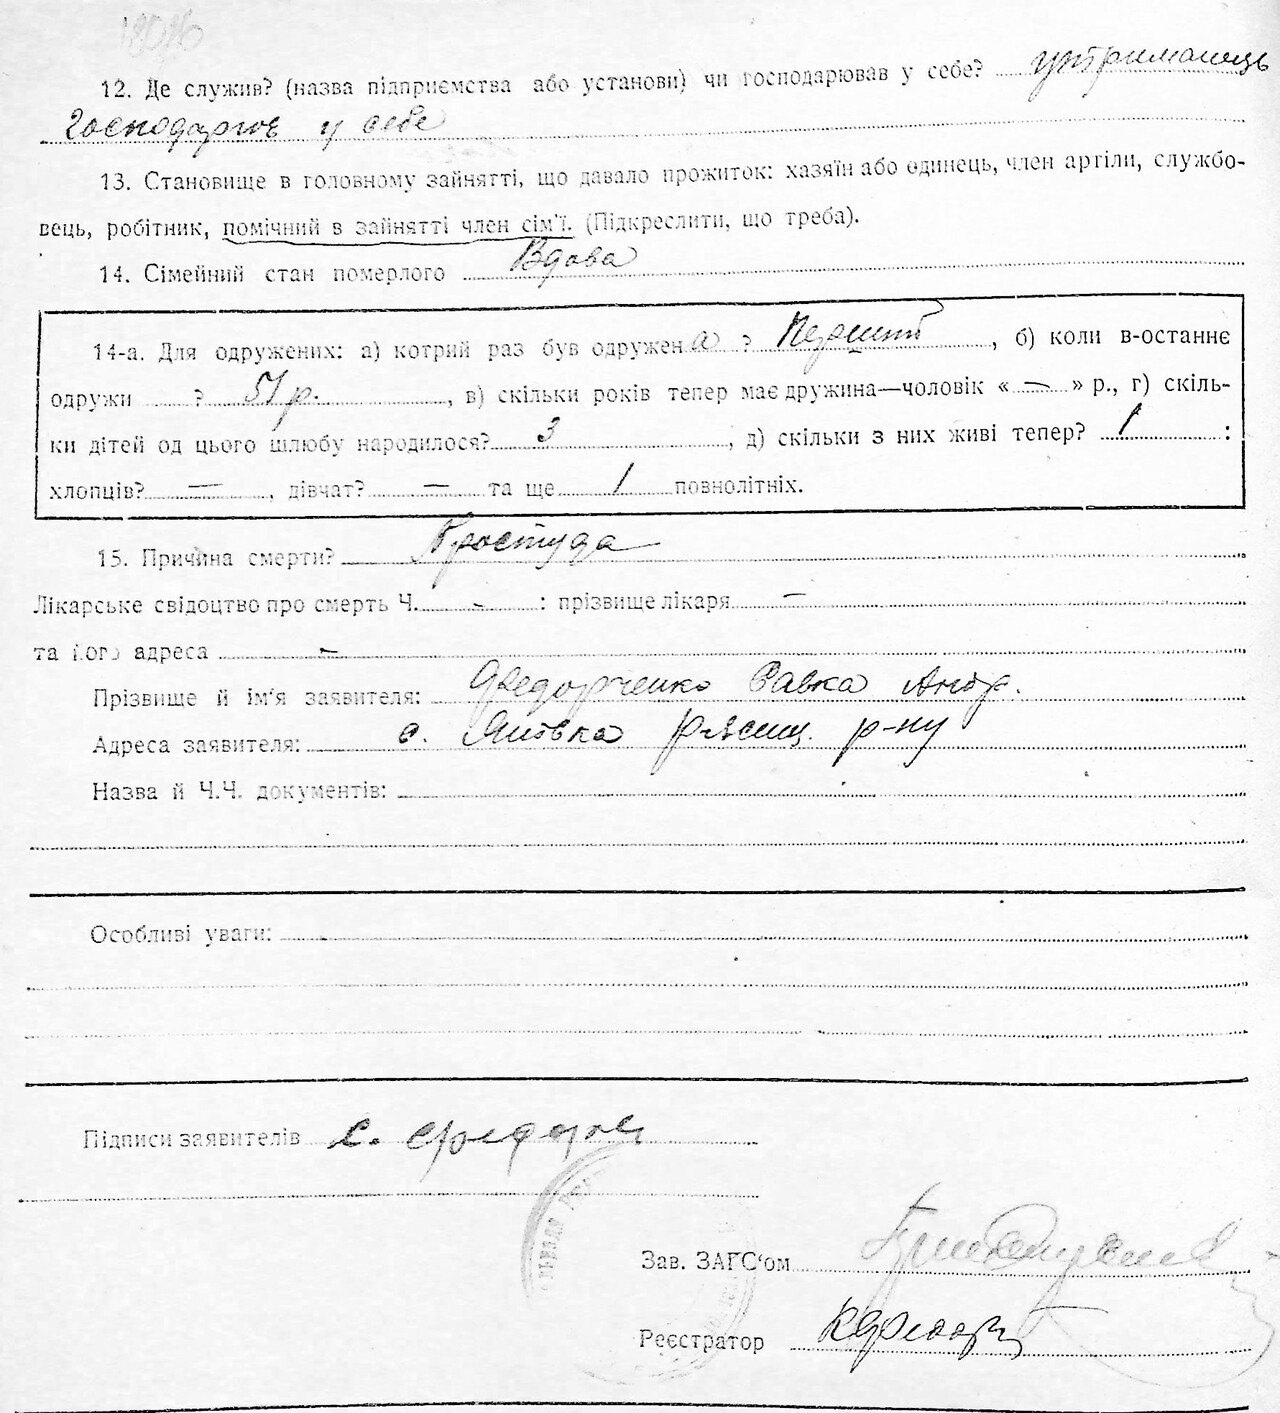 12. Де служив? (назва підприємства або установи) чи господарював у себе? утриманець
Господарює у себе
13. Становище в головному зайнятті, що давало прожиток: хазяїн або одинець, член артіли, службо-
вець, робітник, помічний в зайнятті член сім'ї. (Підкреслити, що треба).
14. Сімейний стан померлого Вдова
14-а. Для одружених: а) котрий раз був одружена ? Перший, б) коли в-останнє
одружи ? 51 р., в) скільки років тепер має дружина—чоловік « — » р., г) скіль-
ки дітей од цього шлюбу народилося? 3, д) скільки з них живі тепер? 1 :
хлопців? —, дівчат? — та ще 1 повнолітніх.
15. Причина смерти? Простуда
Лікарське свідоцтво про смерть Ч. - : прізвище лікаря —
та його адреса —
Прізвище й ім'я заявителя: Федорченко Савка Андр.
Адреса заявителя: с. р-ну
Назва й Ч.Ч. документів:
Особливі уваги:
Підписи заявителів С.
Зав. ЗАГС'ом
Реєстратор